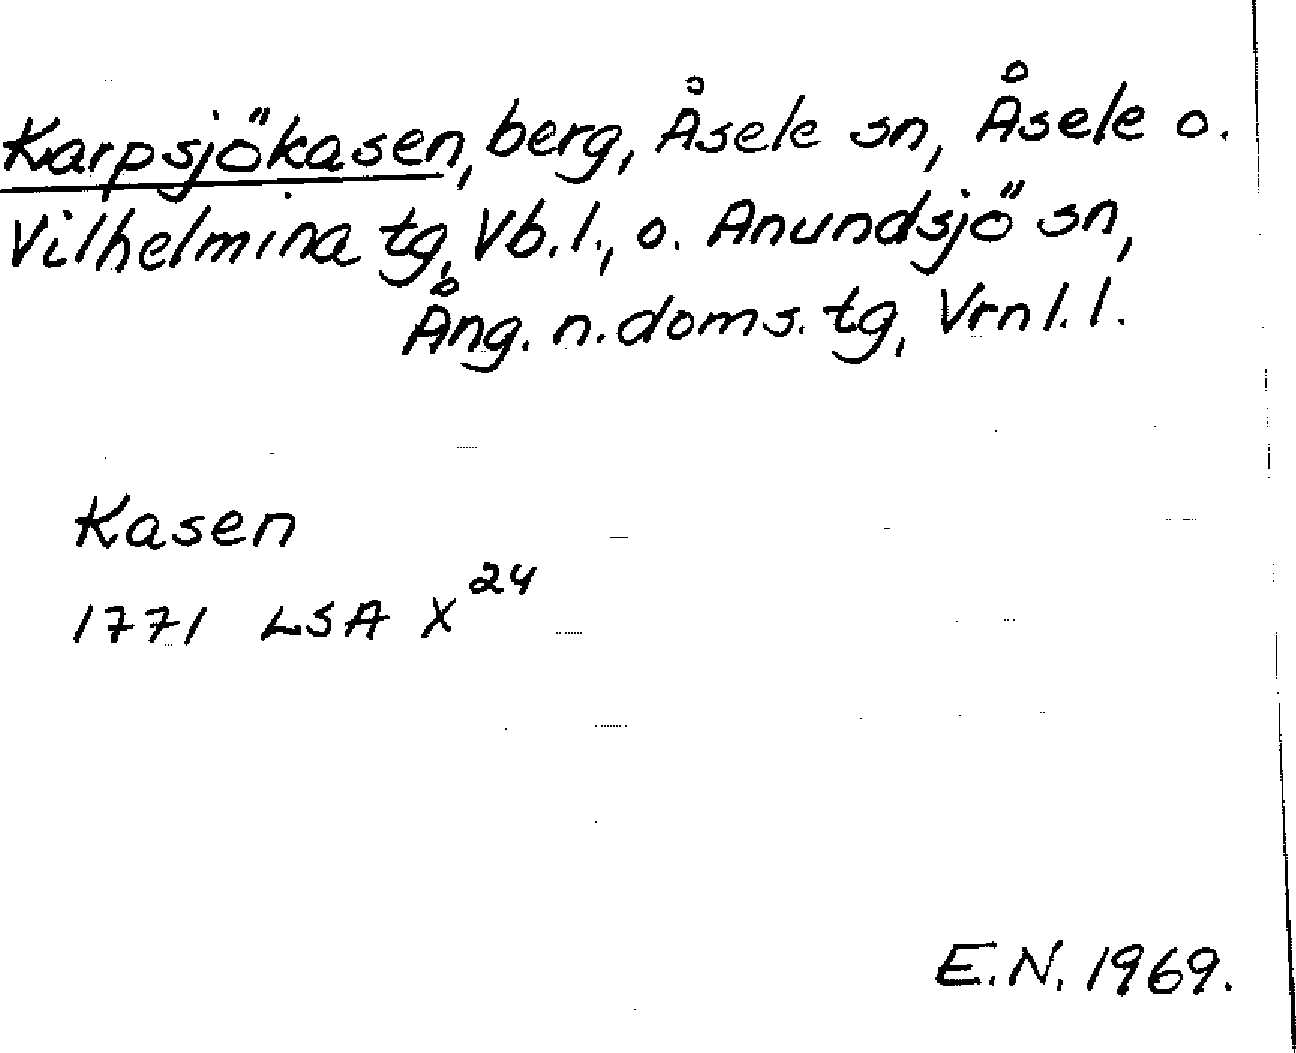 Karpsjökasen, berg, Åsele sn, Åsele o.
Vilhelmina tg, Vb.l., o. Anundsjö sn,
Ång. n. doms. tg, Vrnl.l.
Kasen
1771 LSA X²⁴
E.N. 1969.